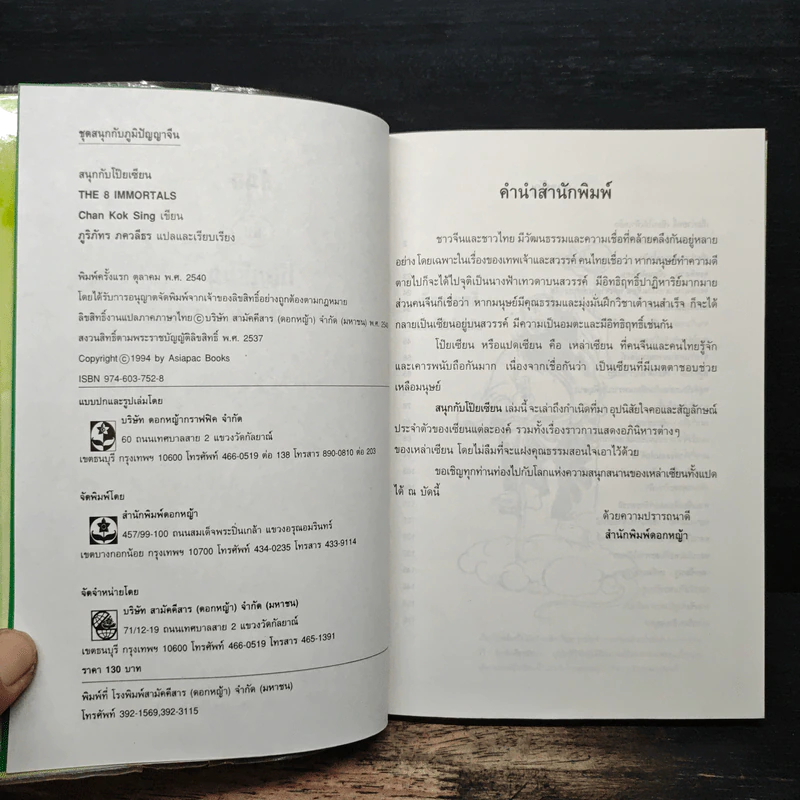 ชุดสนุกกับภูมิปัญญาจีน
สนุกกับโป๊ยเซียน
THE 8 IMMORTALS
Chan Kok Sing เขียน
ภูริภัทร ภควลีธร แปลและเรียบเรียง
พิมพ์ครั้งแรก ตุลาคม พ.ศ. 2540
โดยได้รับการอนุญาตจัดพิมพ์จากเจ้าของลิขสิทธิ์อย่างถูกต้องตามกฎหมาย
ลิขสิทธิ์งานแปลภาคภาษาไทย©บริษัท สามัคคีสาร (ดอกหญ้า) จำกัด (มหาชน) พ.ศ.
สงวนสิทธิ์ตามพระราชบัญญัติลิขสิทธิ์ พ.ศ. 2537
Copyright©1994 by Asiapac Books
ISBN 974-603-752-8
แบบปกและรูปเล่มโดย
บริษัท ดอกหญ้ากราฟฟิค จำกัด
60 ถนนเทศบาลสาย 2 แขวงวัดกัลยาณ์
เขตธนบุรี กรุงเทพฯ 10600 โทรศัพท์ 466-0519 ต่อ 138 โทรสาร 890-0810 ต่อ 203
จัดพิมพ์โดย
สำนักพิมพ์ดอกหญ้า
457/99-100 ถนนสมเด็จพระปิ่นเกล้า แขวงอรุณอมรินทร์
เขตบางกอกน้อย กรุงเทพฯ 10700 โทรศัพท์ 434-0235 โทรสาร 433-9114
จัดจำหน่ายโดย
บริษัท สามัคคีสาร (ดอกหญ้า) จำกัด (มหาชน)
71/12-19 ถนนเทศบาลสาย 2 แขวงวัดกัลยาณ์
เขตธนบุรี กรุงเทพฯ 10600 โทรศัพท์ 466-0519 โทรสาร 465-1391
ราคา 130 บาท
พิมพ์ที่ โรงพิมพ์สามัคคีสาร (ดอกหญ้า) จำกัด (มหาชน)
โทรศัพท์ 392-1569,392-3115
คำนำสำนักพิมพ์
ชาวจีนและชาวไทย มีวัฒนธรรมและความเชื่อที่คล้ายคลึงกันอยู่หลาย
อย่าง โดยเฉพาะในเรื่องของเทพเจ้าและสวรรค์ คนไทยเชื่อว่า หากมนุษย์ทำความดี
ตายไปก็จะได้ไปจุติเป็นนางฟ้าเทวดาบนสวรรค์ มีอิทธิฤทธิ์ปาฏิหาริย์มากมาย
ส่วนคนจีนก็เชื่อว่า หากมนุษย์มีคุณธรรมและมุ่งมั่นฝึกวิชาเต๋าจนสำเร็จ ก็จะได้
กลายเป็นเซียนอยู่บนสวรรค์ มีความเป็นอมตะและมีอิทธิฤทธิ์เช่นกัน
โป๊ยเซียน หรือแปดเซียน คือ เหล่าเซียน ที่คนจีนและคนไทยรู้จัก
และเคารพนับถือกันมาก เนื่องจากเชื่อกันว่า เป็นเซียนที่มีเมตตาชอบช่วย
เหลือมนุษย์
สนุกกับโป๊ยเซียน เล่มนี้ จะเล่าถึงกำเนิดที่มา อุปนิสัยใจคอและสัญลักษณ์
ประจำตัวของเซียนแต่ละองค์ รวมทั้งเรื่องราวการแสดงอภินิหารต่างๆ
ของเหล่าเซียน โดยไม่ลืมที่จะแฝงคุณธรรมสอนใจเอาไว้ด้วย
ขอเชิญทุกท่านท่องไปกับโลกแห่งความสนุกสนานของเหล่าเซียนทั้งแปด
ได้ ณ บัดนี้
ด้วยความปรารถนาดี
สำนักพิมพ์ดอกหญ้า